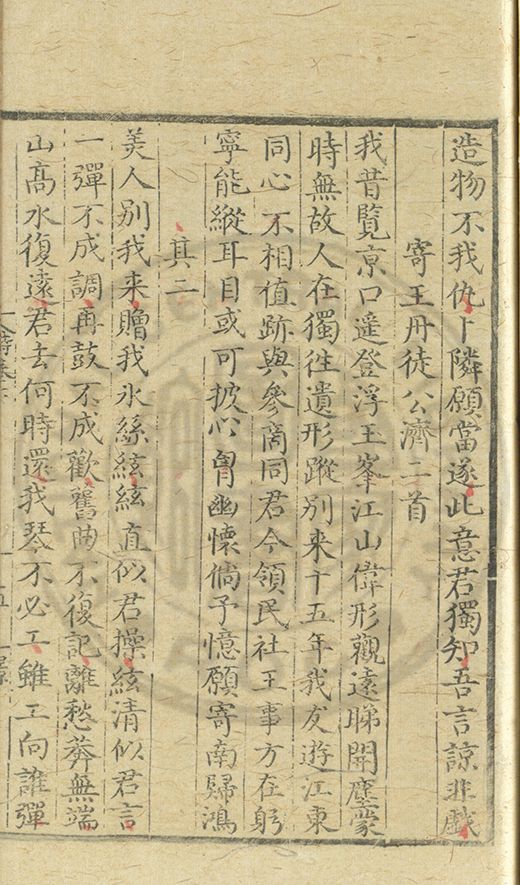 造物不我仇卜隣願當遂此意君獨知吾言諒非戲
寄王丹徒公濟二首
我昔覽京口遥登浮玉峯江山偉形觀遠睇開塵蒙
時無故人在獨往遺形蹤別来十五年我友遊江東
同心不相值跡與參商同君今領民社王事方在躬
寧能縱耳目或可披心胷幽懷倘予憶願寄南歸鴻
其二
美人別我来贈我氷絲絃絃直似君操絃清似君言
一彈不成調再鼓不成歡舊曲不復記離愁莽無端
山高水復遠君去何時還我琴不必工雖工向誰彈